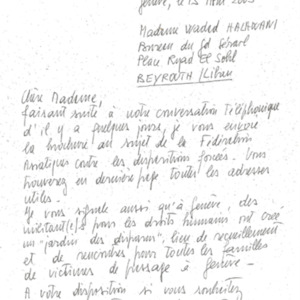 Genève, le 13 Mai 2005
Madame Waded HALAWANI
Bureau du
Place Ryad El Solh
BEYROUTH / Liban
Chère Madame,
faisant suite à notre conversation téléphonique
d'il y a quelques jours, je vous envoie
la brochure au sujet de la Fédération
Asiatique contre les disparitions forcées. Vous
trouverez en dernière page toutes les adresses
utiles.
Je vous signale aussi qu'à Genève, des
militant(e)s pour les droits humains ont créé
un "jardin des disparus", lieu de recueillement
et de rencontres pour toutes les familles
de victimes de passage à Genève.
A votre disposition si vous souhaitez